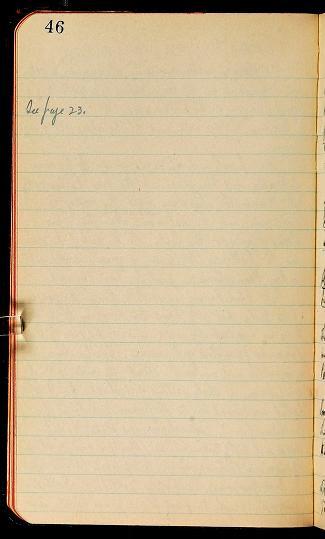 46
See page 23.